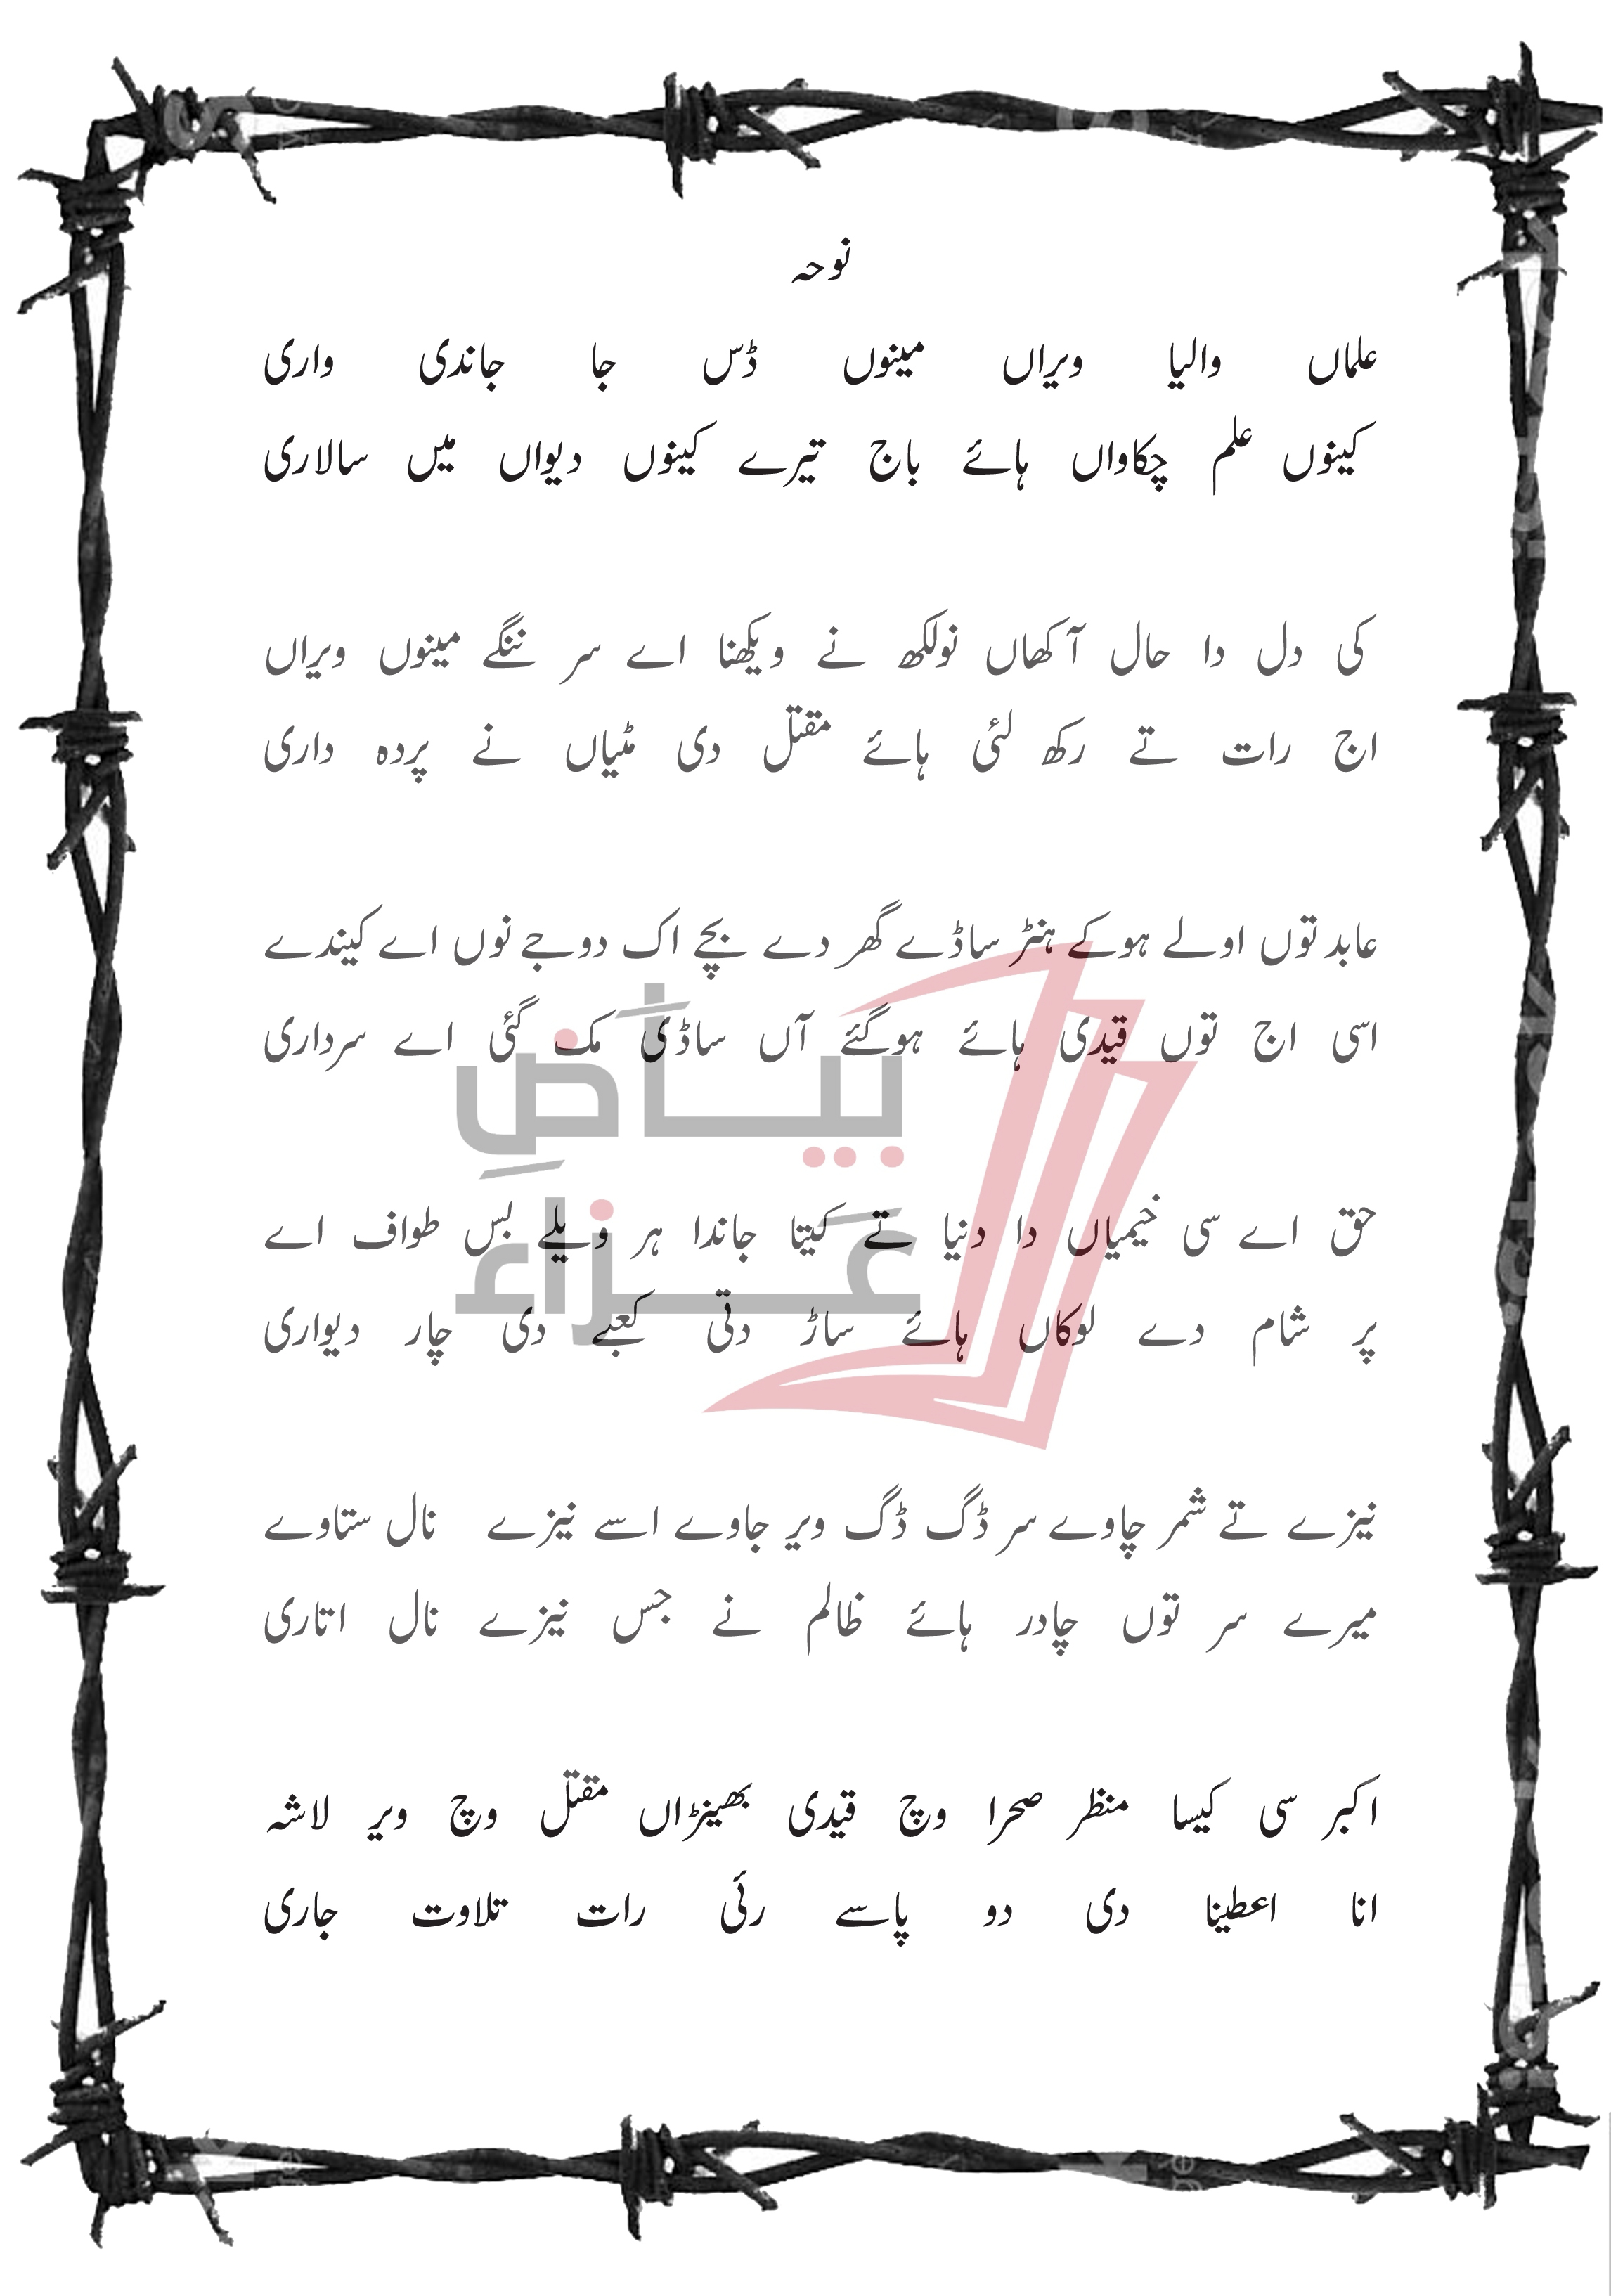 نوحہ
علماں والیا ویراں مینوں ڈس جا جاندی واری
کینوں علم چکاواں ہائے باج تیرے کینوں دیواں میں سالاری
کی دل دا حال آکھاں نولکھ نے ویکھنا اے سر ننگے مینوں ویراں
اج رات تے رکھ لئی ہائے مقتل دی مٹیاں نے پردہ داری
عابد توں اولے ہوکے ہنٹر ساڈے گھر دے بچے اک دوجے نوں اے کیندے
اسی اج توں قیدی ہائے ہوگئے آں ساڈی مک گئی اے سرداری
حق اے سی خیمیاں دا دنیا تے کیتا جاندا ہر ویلے بس طواف اے
پر شام دے لوکاں ہائے ساڑ دتی کعبے دی چار دیواری
نیزے تے شمر چاوے سر ڈگ ڈگ ویر جاوے اسے نیزے نال ستاوے
میرے سر توں چادر ہائے ظالم نے جس نیزے نال اتاری
اکبر سی کیسا منظر صحرا وچ قیدی بھینڑاں مقتل وچ ویر لاشہ
انا اعطینا دی دو پاسے رئی رات تلاوت جاری
بیاضِ
عَزاء